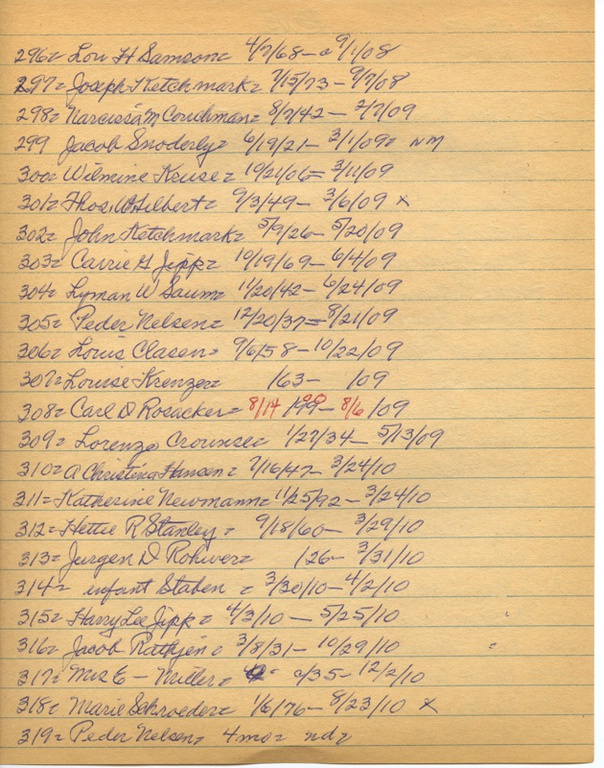 296= Lori H Samson= 4/7/68- 9/1/08
297= Joseph Ketchmark= 7/15/73 - 9/7/08
298= Narcissa M Couchman= 8/7/42 - 2/7/09
299 Jacob Snoderly= 6/19/21- 3/1/09= NM
300= Wilmine Kruse= 10/21/06= 3/11/09
301= Thos. W Gilbert= 9/3/49- 3/6/09 x
302= John Ketchmark= 5/9/26- 5/20/09
303= Carrie G Jipp= 10/19/69- 6/4/09
304= Lyman W Saum= 11/20/42- 6/24/09
305= Peder Nelsen= 12/20/37= 8/21/09
306= Louis Clasen= 9/6/58- 10/22/09
307= Louise Krenzer= /63- /09
308= Carl D Rosacker= 8/14 /99- 8/6 /09
309= Lorenzo Crounse= 1/27/34- 5/13/09
310= A Christina Hansen= 7/16/47- 3/24/10
311= Katherine Newmann= 11/25/92- 3/24/10
312= Hettie R Stanley= 9/18/60- 3/29/10
313= Jurgen D Rohwer= /26- 3/31/10
314= infant Staben= 3/30/10- 4/2/10
315= Harry Lee Jipp= 4/3/10- 5/25/10
316= Jacob Rathjen= 3/8/31- 10/29/10
317= Mrs E - Miller= /35- 12/2/10
318= Marie Schroeder= 1/6/76- 8/23/10 x
319= Peder Nelsen= 4 mo= nd=